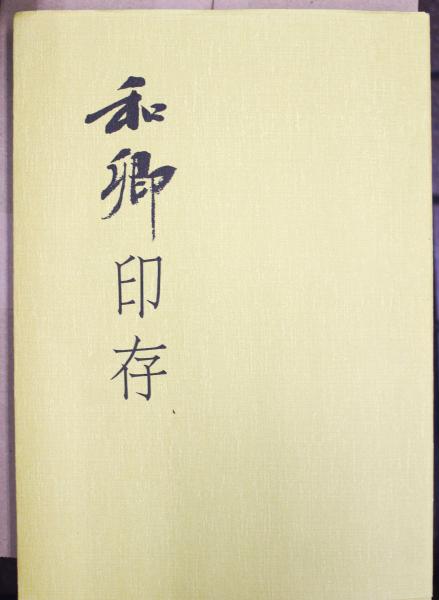 和卿印存